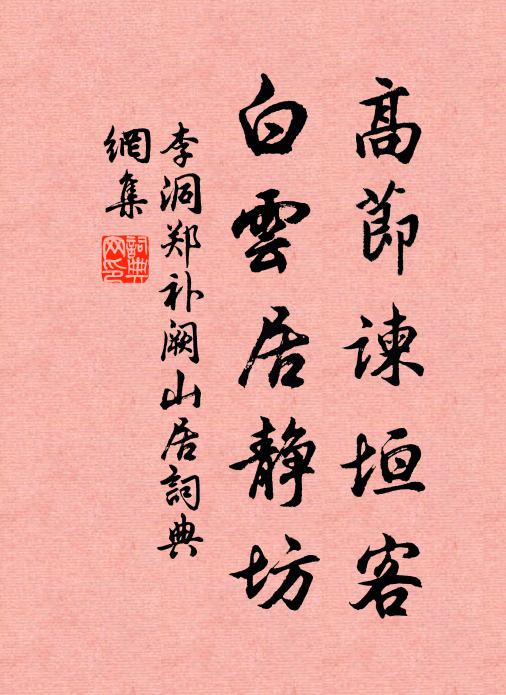 高節諫垣客
白雲居静坊
李洞郑补阙山居詞典
網集
詞典
网印